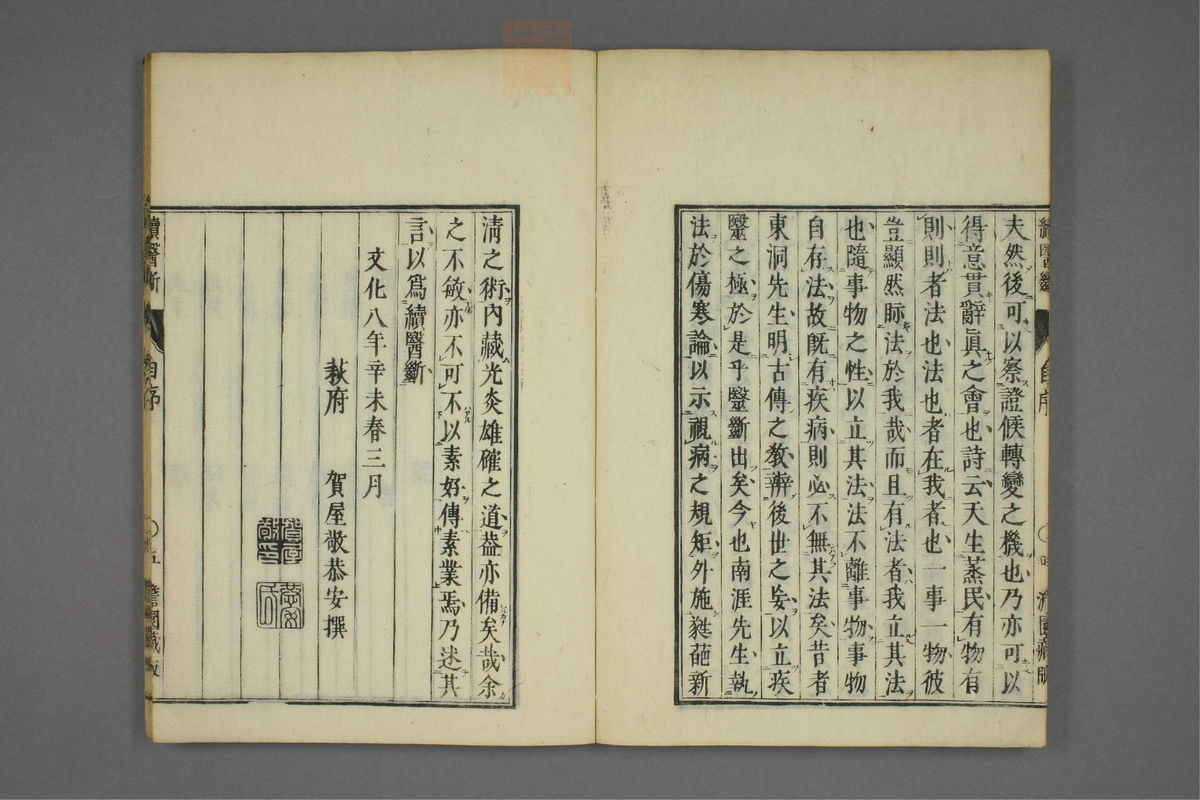 夫然後可以察證候轉變之機也乃亦可以
得意貫辭眞之會也詩云天生蒸民有物有
則則者法也法也者在我者也一事一物彼
豈顯然眎法於我哉而且有法者我立其法
也隨事物之性以立其法法不離事物事物
自存法故旣有疾病則必不無其法矣昔者
東洞先生明古傳之敎辨後世之妄以立疾
毉之極於是乎毉斷出矣今也南涯先生執
法於傷寒論以示視病之規矩外施毿葩新
淸之術內藏光炎雄確之道盎亦備矣哉余
之不敏亦不可不以素好傳素業焉乃述其
言以爲續醫斷
文化八年辛未春三月
萩府　賀屋敬恭安撰
續醫斷
自序
五